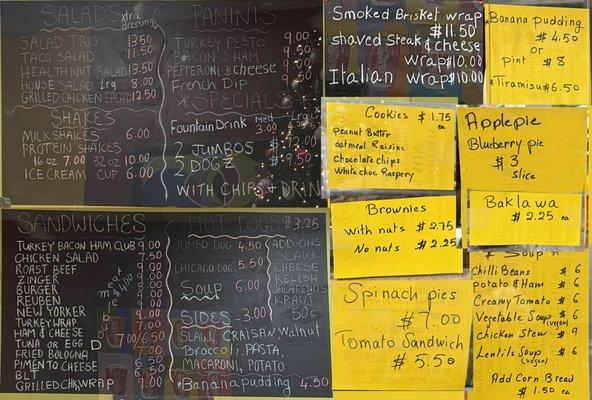 SALADS xtra dressings
SALAD TRIO 13.50
TACO SALAD 11.50
HEALTHNUT SALAD 13.50
HOUSE SALAD Lrg 8.00
GRILLED CHICKEN SALAD 12.50
SHAKES
MILKSHAKES 6.00
PROTEIN SHAKES
16oz 7.00 32oz 10.00
ICE CREAM CUP 6.00
PANINIS
TURKEY PESTO 9.00
BACON & HAM 9.50
PEPPERONI & cheese 9.00
French Dip
*SPECIALS*
Fountain Drink Med Lrg
3.00
2 JUMBOS
2 DOGZ 9.50
WITH CHIPS & DRINK
Smoked Brisket wrap
$11.50
shaved Steak & cheese
wrap $10.00
Italian wrap $10.00
Banana pudding
$4.50
or
Pint $8
*Tiramisu $6.50
Cookies $1.75 ea
Peanut Butter
oatmeal Raisins
Chocolate chips
White choc Raspery
Applepie
Blueberry pie
$3
slice
Brownies
with nuts $2.75
No nuts $2.25
Baklawa
$2.25 ea
SANDWICHES
TURKEY BACON HAM CLUB 9.00
CHICKEN SALAD 7.50
ROAST BEEF
ZINGER
BURGER
REUBEN
NEW YORKER
TURKEY WRAP
HAM & CHEESE
TUNA OR EGG
FRIED BOLOGNA
PIMENTO CHEESE
BLT
GRILLED CHK WRAP 9.00
HOT DOGS $3.25
JUMBO DOG 4.50
CHICAGO DOG 5.50
SOUP 6.00
ADD-ONS
SLAW
CHEESE
RELISH
JALAPENOS
KRAUT
50¢
SIDES -3.00
SLAW, CRAISAN Walnut
Broccoli, PASTA,
MACARONI, POTATO
*Banana pudding 4.50
Spinach pies
$7.00
Tomato Sandwich
$5.50
* Soup *
Chilli Beans $6
Potato & Ham $6
Creamy Tomato $6
Vegetable Soup (vegan) $6
chicken Stew $9
Lentils Soup (vegan) $6
Add Corn Bread
$1.50 ea